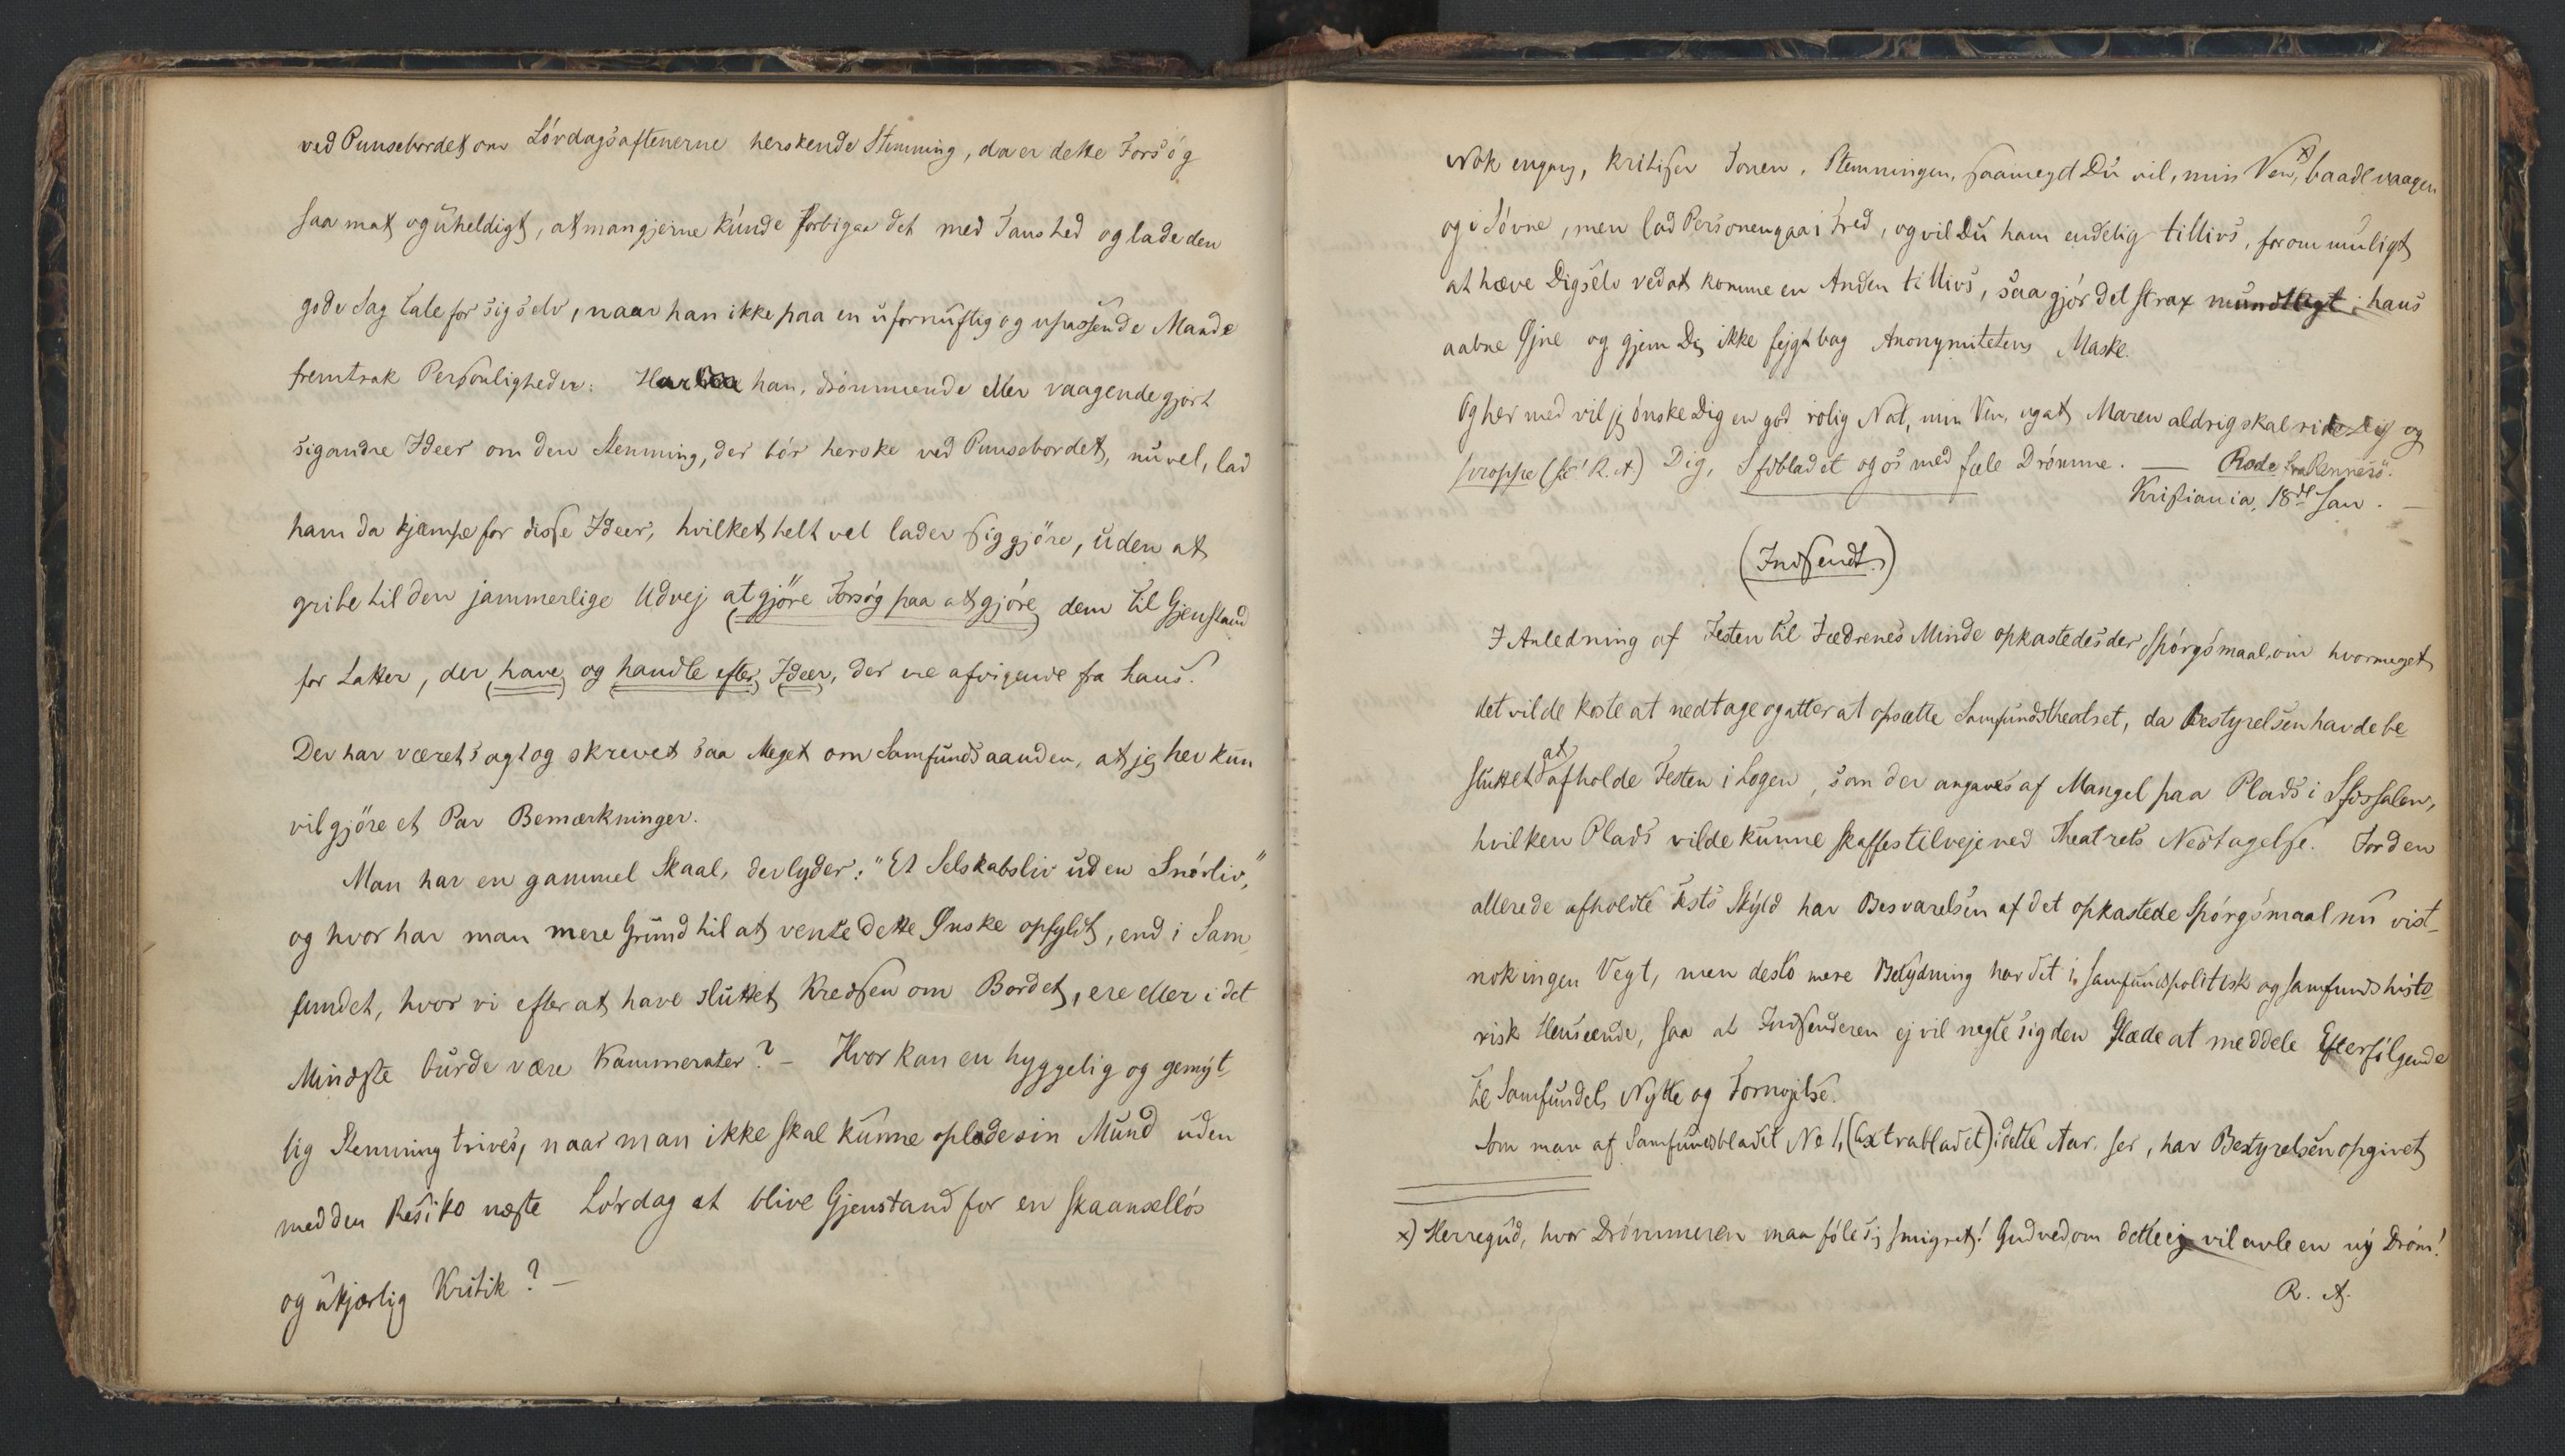 ved Punsebordet om Lórdagsaftenerne herskende Stemning, da er dette Forsóg
saa mat og uheldigt, at man gjerne kunde forbigaa det med Taushed og lade den
gode Sag tale for sig selv, naar han ikke paa en ufornuftig og upassende Maade
fremtrak Personligheder: Har han, drömmende eller vaagende gjort
sig andre Ideer om den Stemning, der bór herske ved Punsebordet, nuvel, lad
ham da kjæmpe for disse Ideer, hvilket helt vel lader sig gjöre, uden at
gribe til den jammerlige Udvej (at gjöre Forsóg paa at gjóre) dem til Gjenstand
for Latter, der (have) og (handle efter) (Ideer), der ere afvigende fra hans.
Der har været sagt og skrevet saa Meget om Samfundsaanden, at jeg her kun
vil gjöre et Par Bemærkninger.
Man har en gammel Skaal, der lyder: "Et Selskabsliv uden Snórliv,"
og hvor har man mere Grund til at vente dette Ønske opfyldt, end i Sam
fundet, hvor vi efter at have sluttet Kredsen om Bordet, ere eller i det
Mindste burde være Kammerater? – Hvor kan en hyggelig og gemyt-
lig Stemning trives, naar man ikke skal kunne oplade sin Mund uden
med den Resiko næste Lórdag at blive Gjenstand for en skaanselløs
og ukjærlig Kritik? –
Nok engang, kritiser Tonen, Stemningen, saameget Du vil, min Ven,x) baade vaagen
og i Sóvne, men lad Personen gaa i Fred, og vil Du ham endelig tillivs, for om muligt
at hæve Dig selv ved at komme en Anden tillivs, saa gjór det strax mundtligt i hans
aabne Øjne og gjem Dig ikke fejgt bag Anonymitetens Maske.
Og her med vil jeg ónske Dig en god rolig Nat, min Ven, og at Maren aldrig skal ride Dig og
proppe (sc! R. A.) Dig, Sfdbladet og os med fæle Drómme. — Rode fra Rennesö.
Kristiania, 18de Jan. —
(Indsendt.)
I Anledning af Festen til Fædrenes Minde opkastedes der Spórgsmaal, om hvormeget
det vilde koste at nedtage og atter at opsætte Samfundstheatret, da Bestyrelsen havde be-
sluttet at afholde Festen i Logen, som der angaves af Mangel paa Plads i Sfdssalen,
hvilken Plads vilde kunne skaffes tilveje ved Theatrets Nedtagelse. For den
allerede afholdte Fests Skyld har Besvarelsen af det opkastede Spórgsmaal nu vist-
nok ingen Vegt, men desto mere Betydning har det i samfundspolitisk og samfundshisto-
risk Henseende, saa at Indsenderen ej vil negte sig den Glæde at meddele Efterfólgende
til Samfundets Nytte og Fornøjelse.
Som man af Samfundsbladet No 1, (Extrabladet) i dette Aar. ser, har Bestyrelsen opgivet
x) Herregud, hvor Drómmeren maa fóle sig smigret! Gud ved, om dette ej vil avle en ny Dróm!
R. A.